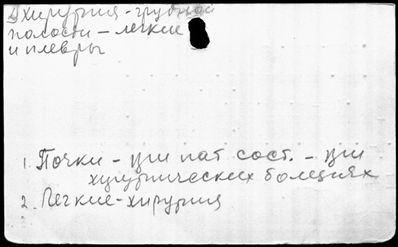 Хирургия - грудной
полости - легкие
и плевры
1. Почки - при пат. сост. - при
хирургических болезнях
2. Легкие - хирургия